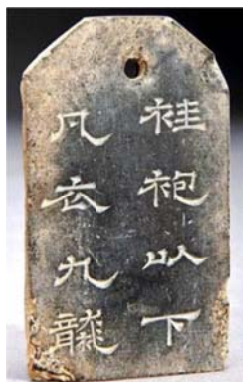 袿袍以下
凡衣九襲